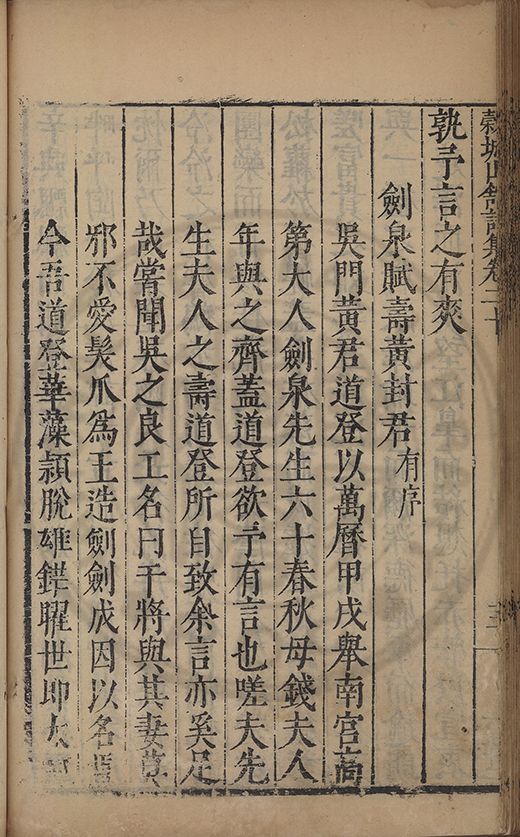 穀城山館詩集卷二十
孰予言之有爽
劍泉賦壽黃封君有序
吳門黃君道登以萬曆甲戌舉南宮高
第大人劍泉先生六十春秋母錢夫人
年與之齊蓋道登欲予有言也嗟夫先
生夫人之壽道登所自致余言亦奚足
哉嘗聞吳之良工名曰干將與其妻莫
邪不愛髮爪爲王造劍劍成因以名焉
今吾道登華藻頴脫雄鋩曜世即